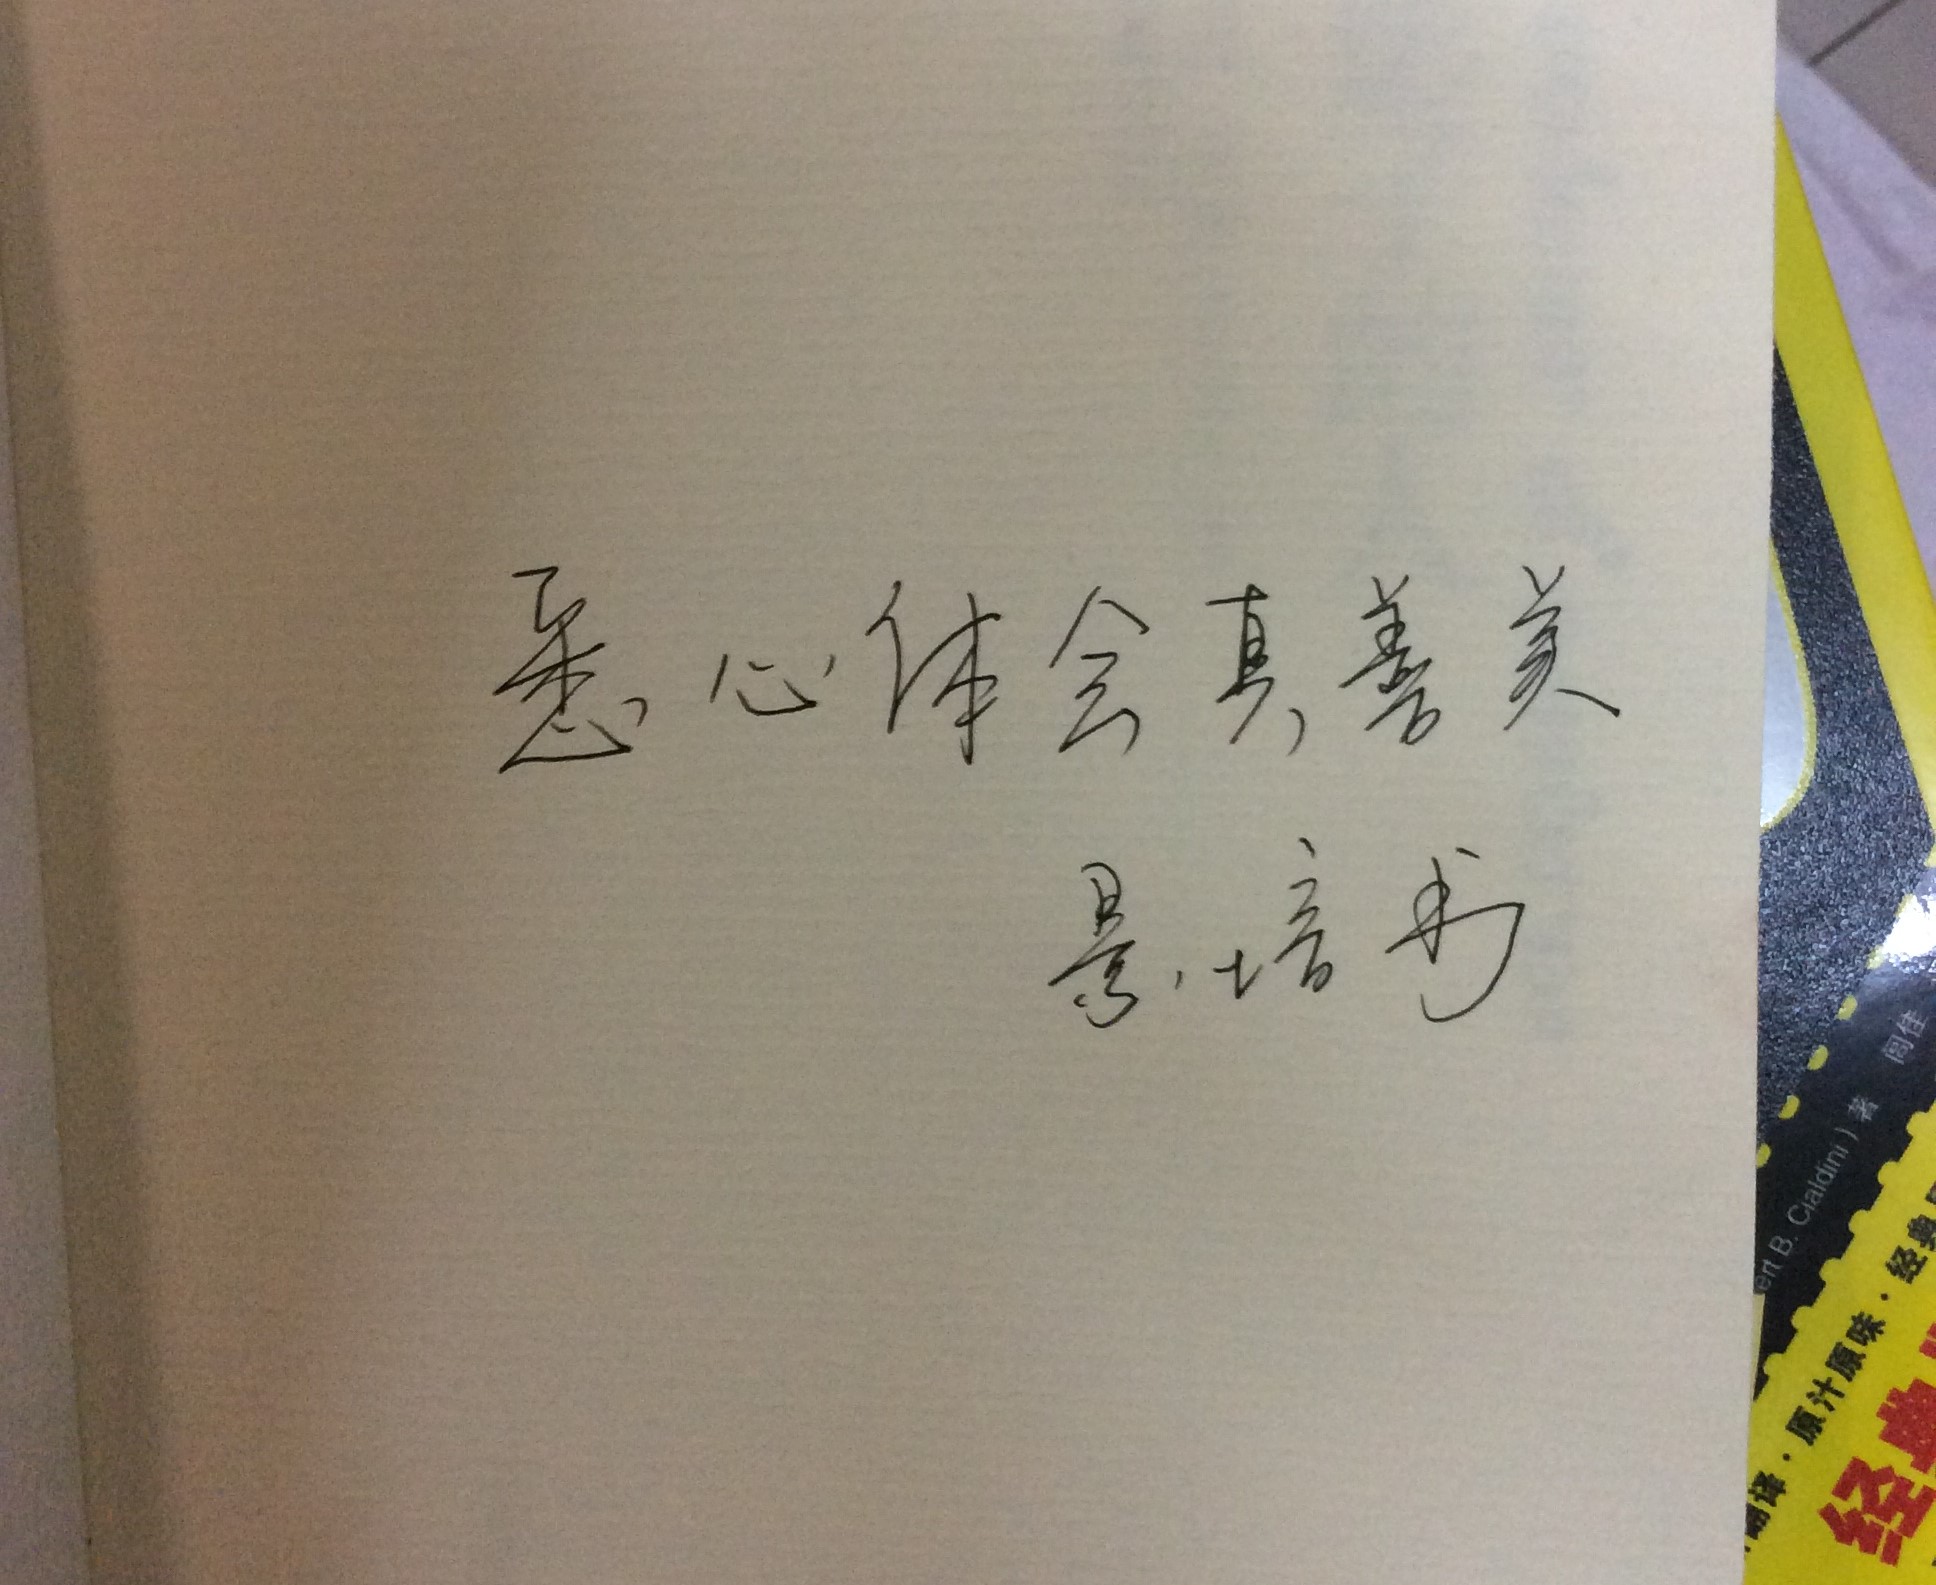 悉心体会真善美
景培书
闾佳
ert B. Cialdini）著
翻译·原汁原味·经典
经典